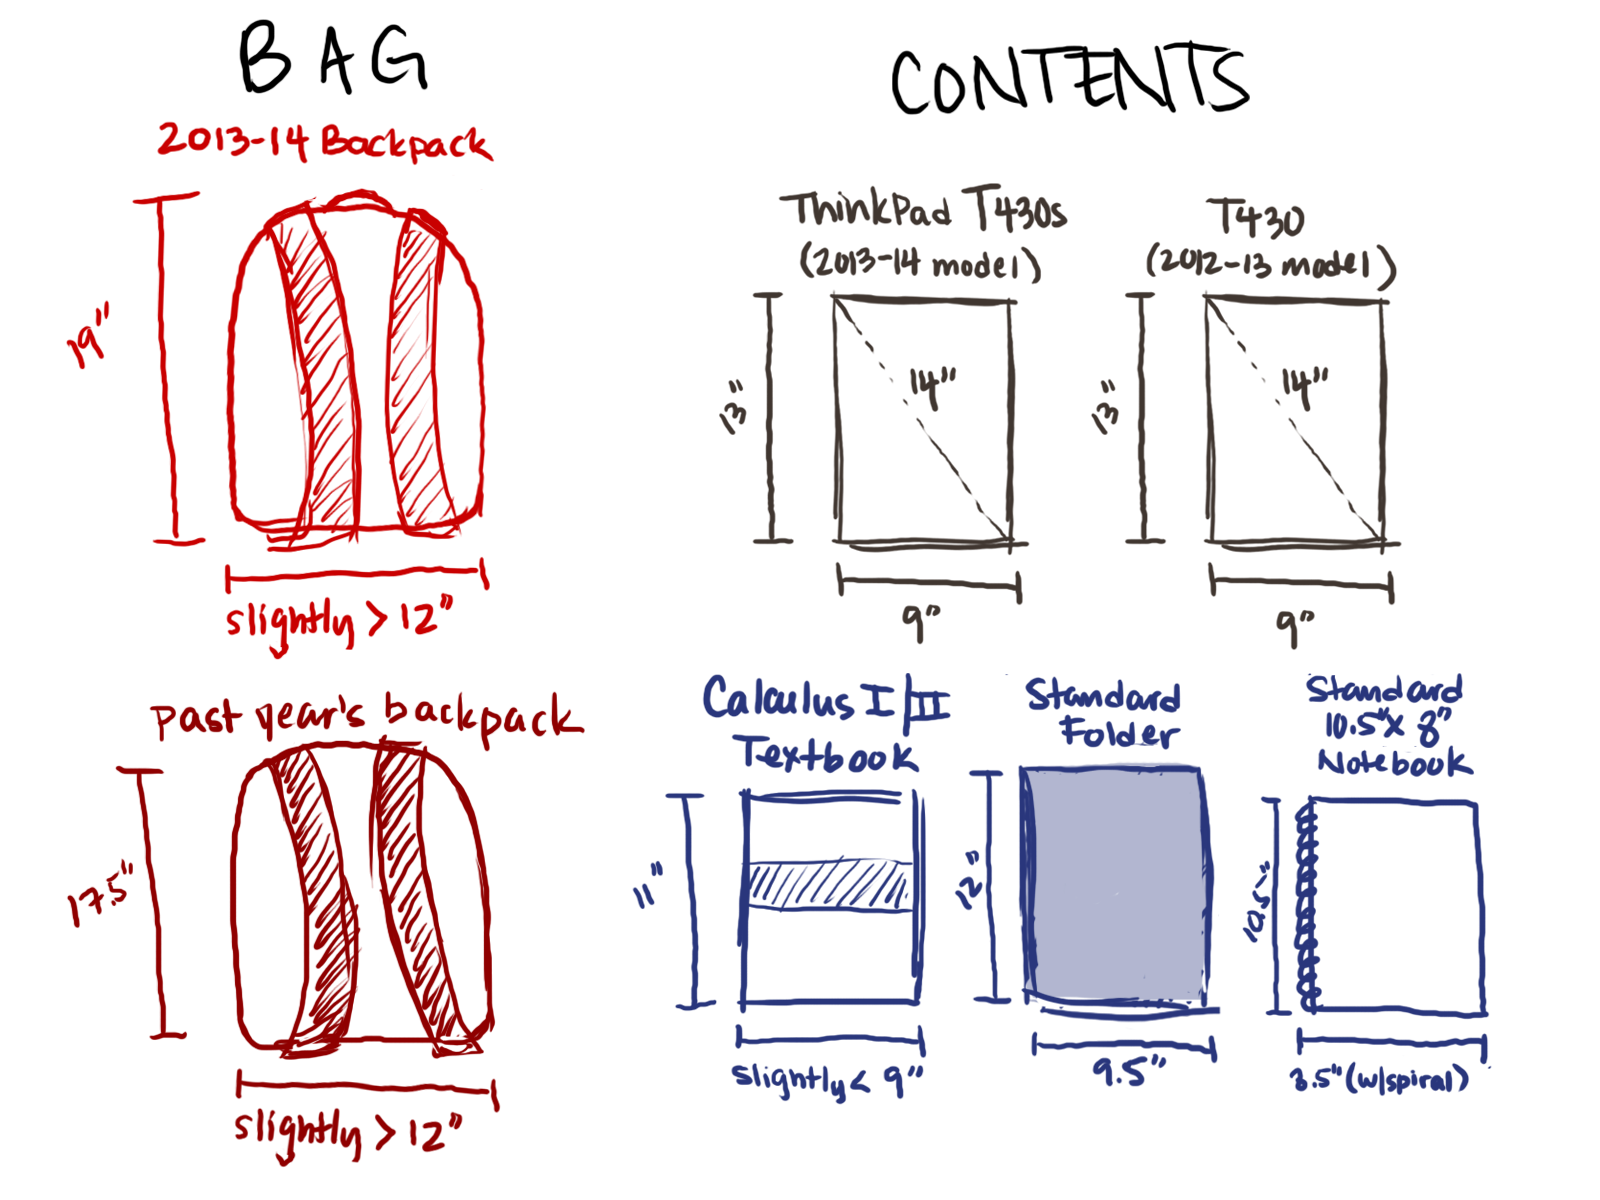 BAG
2013-14 Backpack
19"
slightly > 12"
past year's backpack
17.5"
slightly > 12"
CONTENTS
ThinkPad T430s
(2013-14 model)
13"
14"
9"
T430
(2012-13 model)
13"
14"
9"
Calculus I/II
Textbook
11"
slightly < 9"
Standard
Folder
12"
9.5"
Standard
10.5"x 8"
Notebook
10.5"
8.5" (w/spiral)